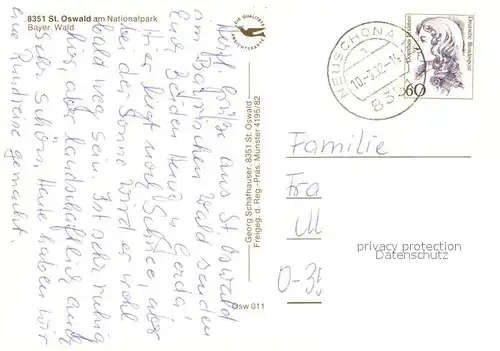 8351 St. Oswald am Nationalpark
Bayer. Wald
DIE QUALITÄTS
ANSICHTSKARTE
NEUSCHÖNAU
10.-3.92-14
835
Deutsche Bundespost
60
Herzl. Grüße aus St. Oswald
am Bayrischen Wald senden
Euch Beiden Heinz u. Gerda.
Hier liegt noch Schnee, aber
bei der Sonne wird er wohl
bald weg sein. Ist sehr ruhig
hier, aber landschaftlich auch
sehr schön. Heute haben wir
eine Rundreise gemacht.
Georg Schafhauser, 8351 St. Oswald
Freigeg. d. Reg.-Präs. Münster 4195/82
Osw 011
Familie
Fra
M
O-35
privacy protection
DSGVO